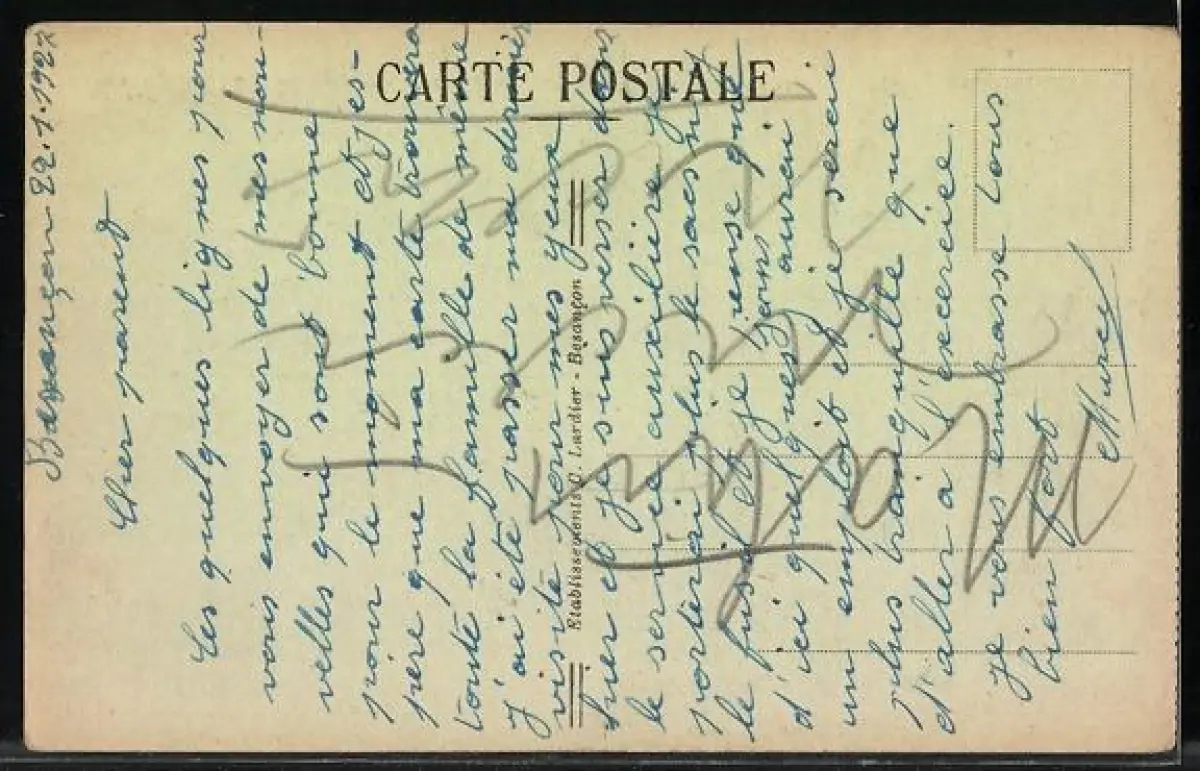 CARTE POSTALE
Etablissements C. Lardier - Besançon
Besançon 22.1.1927
Cher parent
Ces quelques lignes pour
vous envoyer de mes nou-
velles qui sont bonne
pour le moment et j'es-
père que ma carte trouvera
toute la famille de même
j'ai été passer ma dernière
visite pour mes yeux
hier et je suis verser dans
le service auxilière je
porterai plus le sac ni
le fusil et je pense que
d'ici quelques jours j'aurai
un emploit et je serai
plus tranquille que
d'aller à l'excercice.
Je vous embrasse tous
bien fort